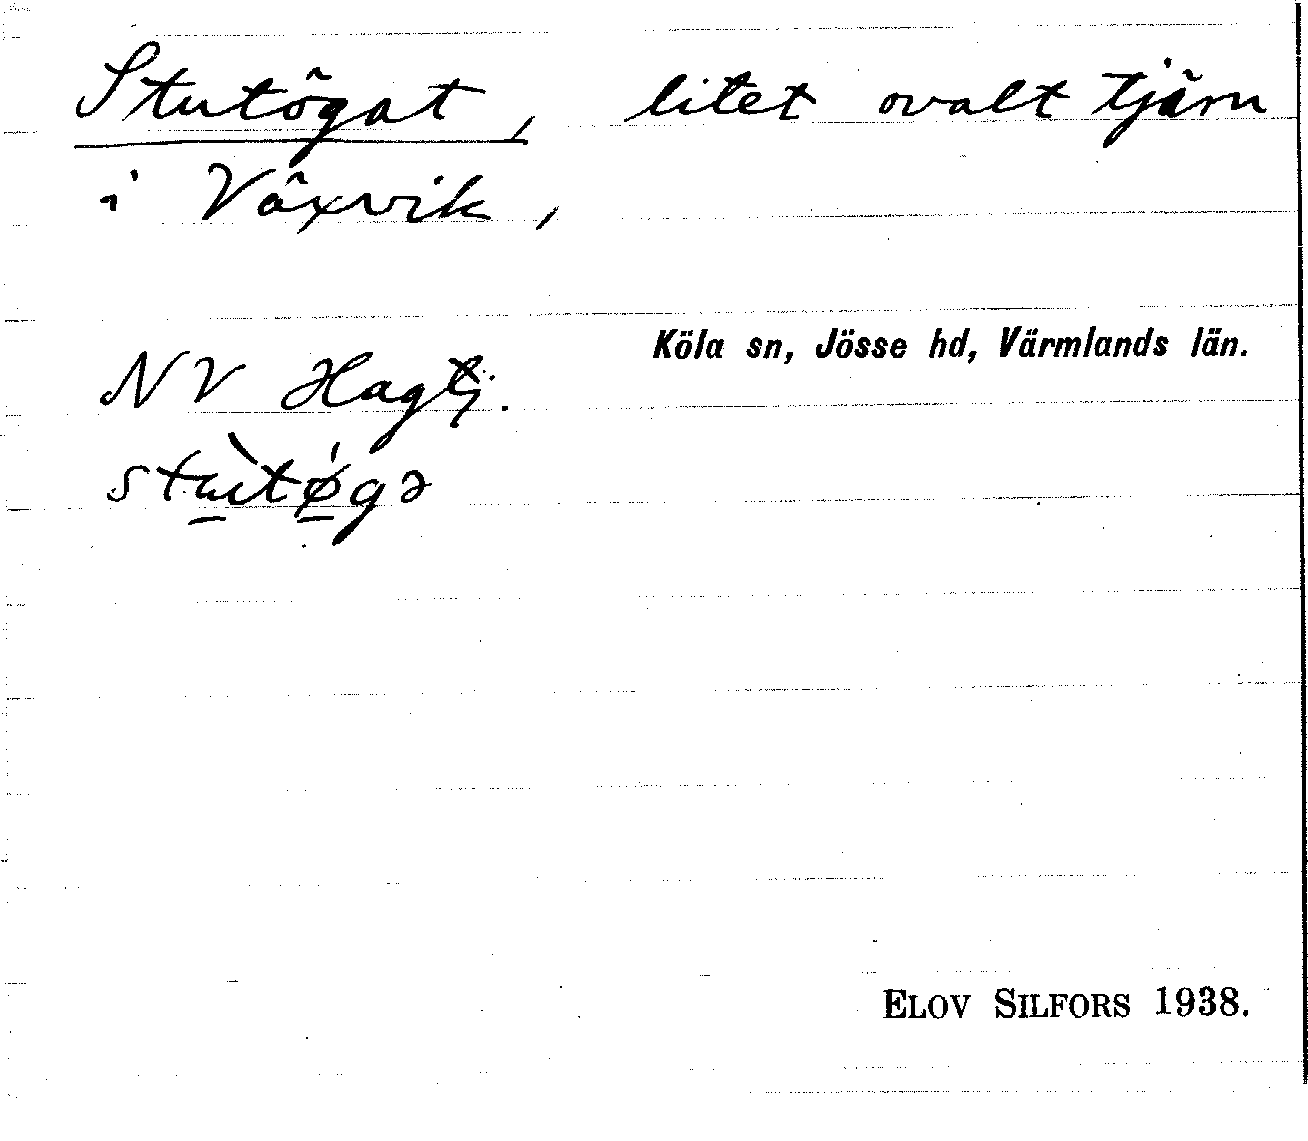 Stutögat, litet ovalt tjärn
i Växvik,
Köla sn, Jösse hd, Värmlands län.
NV Hagtj.
stùtǿgə
ELOV SILFORS 1938.